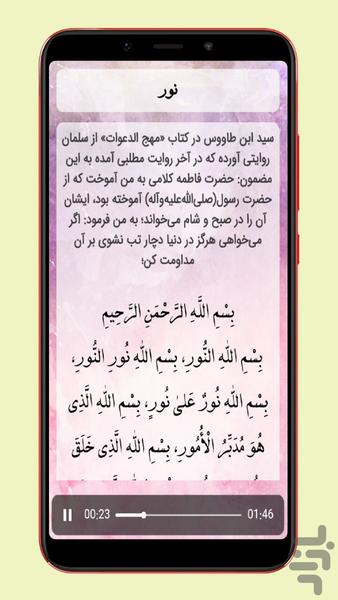 نور
سید ابن طاووس در کتاب «مهج الدعوات» از سلمان
روایتی آورده که در آخر روایت مطلبی آمده به این
مضمون: حضرت فاطمه کلامی به من آموخت که از
حضرت رسول(صلی‌الله‌علیه‌وآله) آموخته بود، ایشان
آن را در صبح و شام می‌خواندند؛ به من فرمود: اگر
می‌خواهی هرگز در دنیا دچار تب نشوی بر آن
مداومت کن؛
بِسْمِ اللَّهِ الرَّحْمَنِ الرَّحِيمِ
بِسْمِ اللّٰهِ النُّورِ، بِسْمِ اللّٰهِ نُورِ النُّورِ،
بِسْمِ اللّٰهِ نُورٌ عَلىٰ نُورٍ، بِسْمِ اللّٰهِ الَّذِى
هُوَ مُدَبِّرُ الْأُمُورِ، بِسْمِ اللّٰهِ الَّذِى خَلَقَ
00:23
01:46
بازار